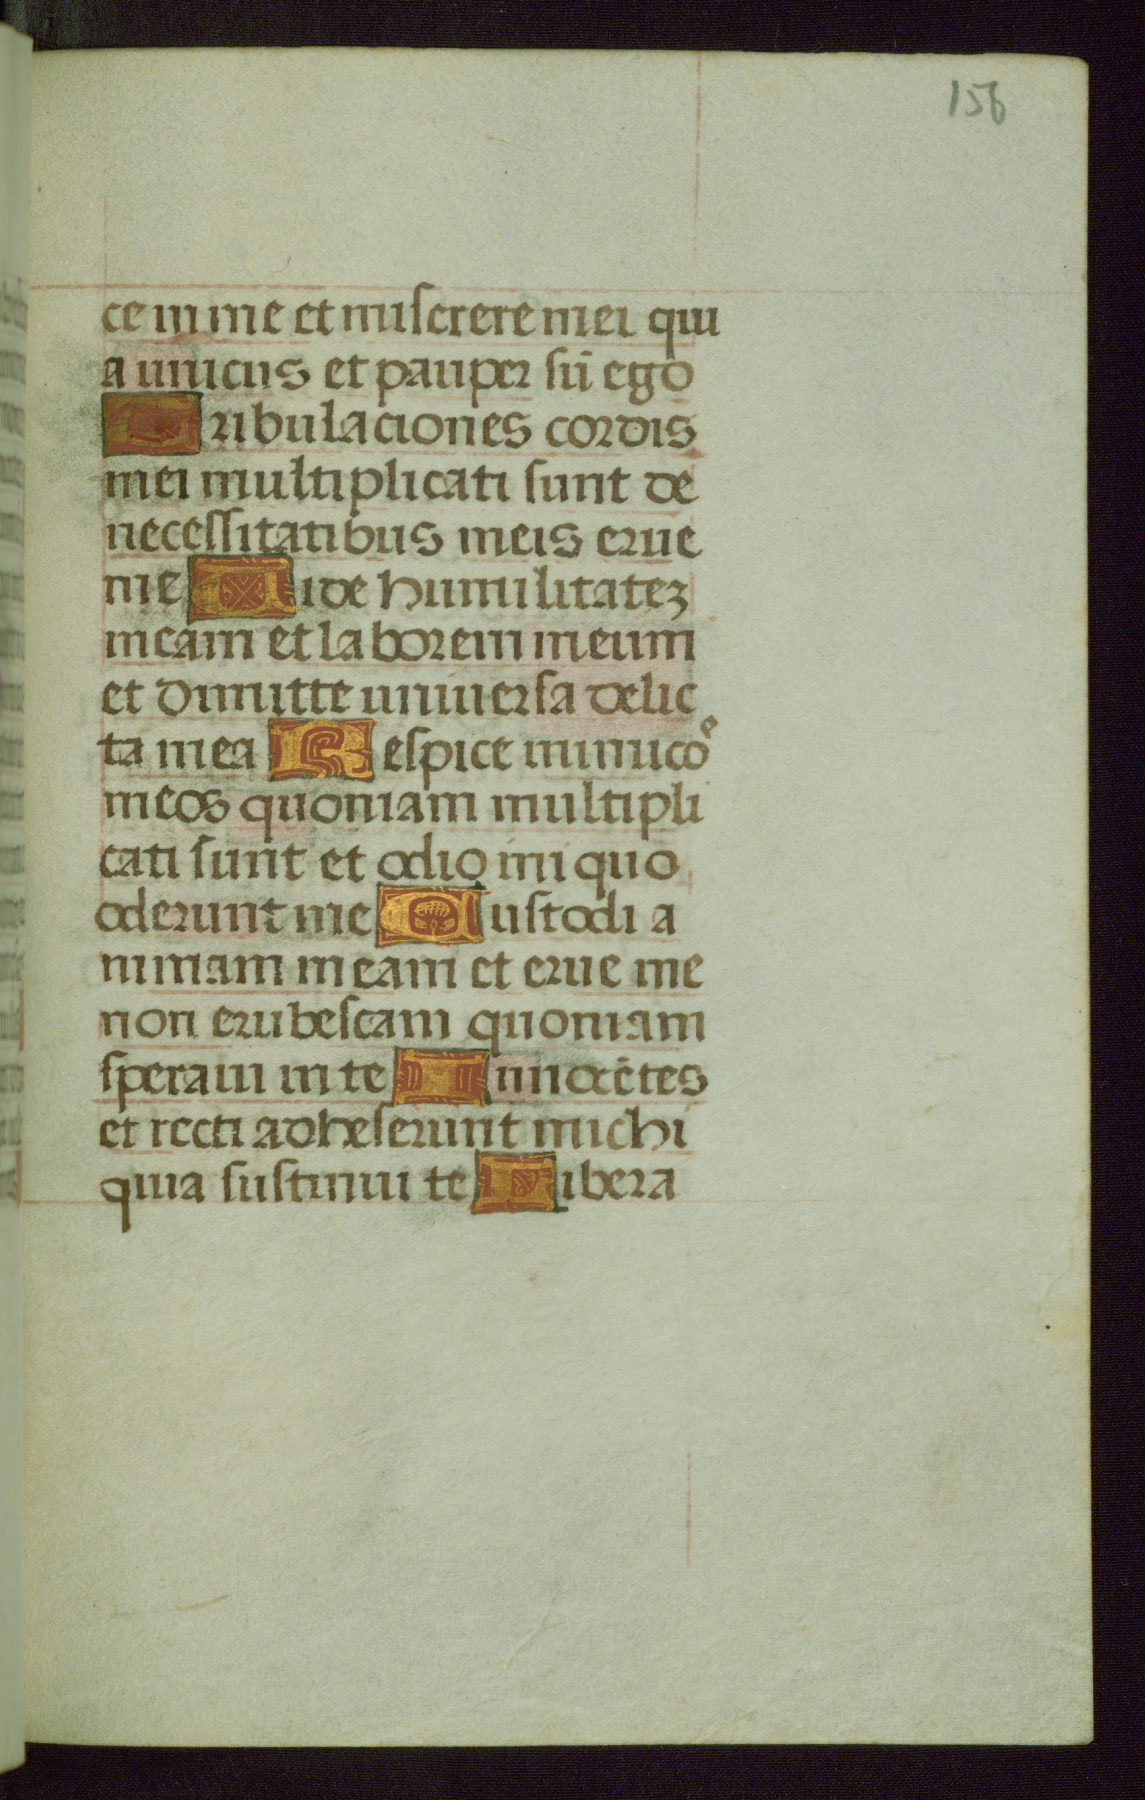 156
ce in me et miserere mei qui
a unicus et pauper sū ego
Tribulaciones cordis
mei multiplicati sunt de
necessitatibus meis erue
me Vide humilitatez
meam et laborem meum
et dimitte universa delic
ta mea Respice inimicos
meos quoniam multipli
cati sunt et odio iniquo
oderunt me Custodi a
nimam meam et erue me
non erubescam quoniam
speravi in te Innocētes
et recti adheserunt michi
quia sustinui te Libera